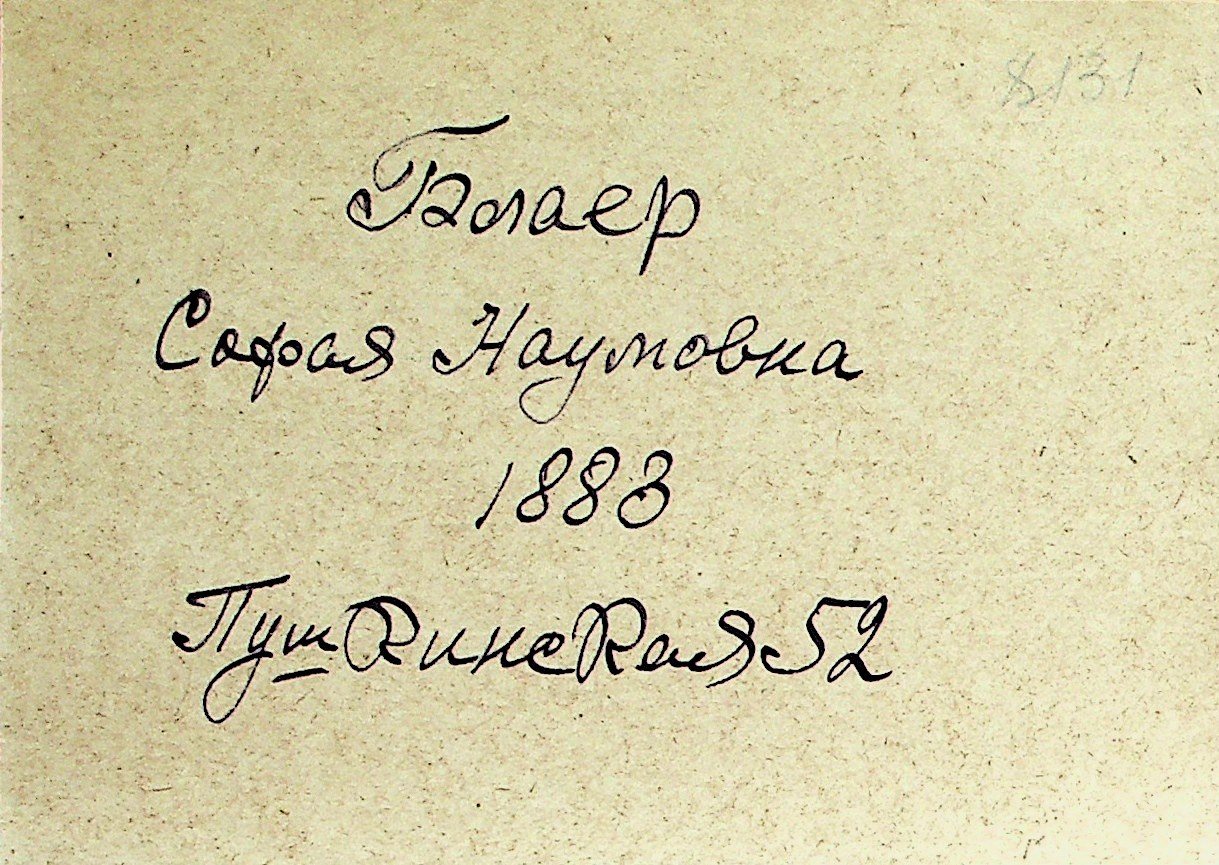 8131
Блаер
Софая Наумовна
1883
Пушкинская 52